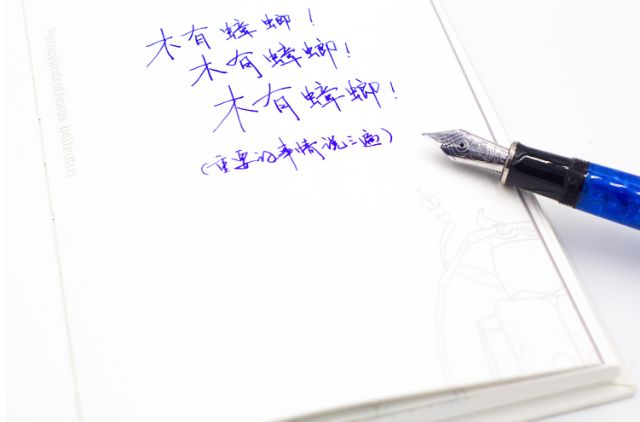 木有蟑螂！
木有蟑螂！
木有蟑螂！
（重要的事情说三遍）